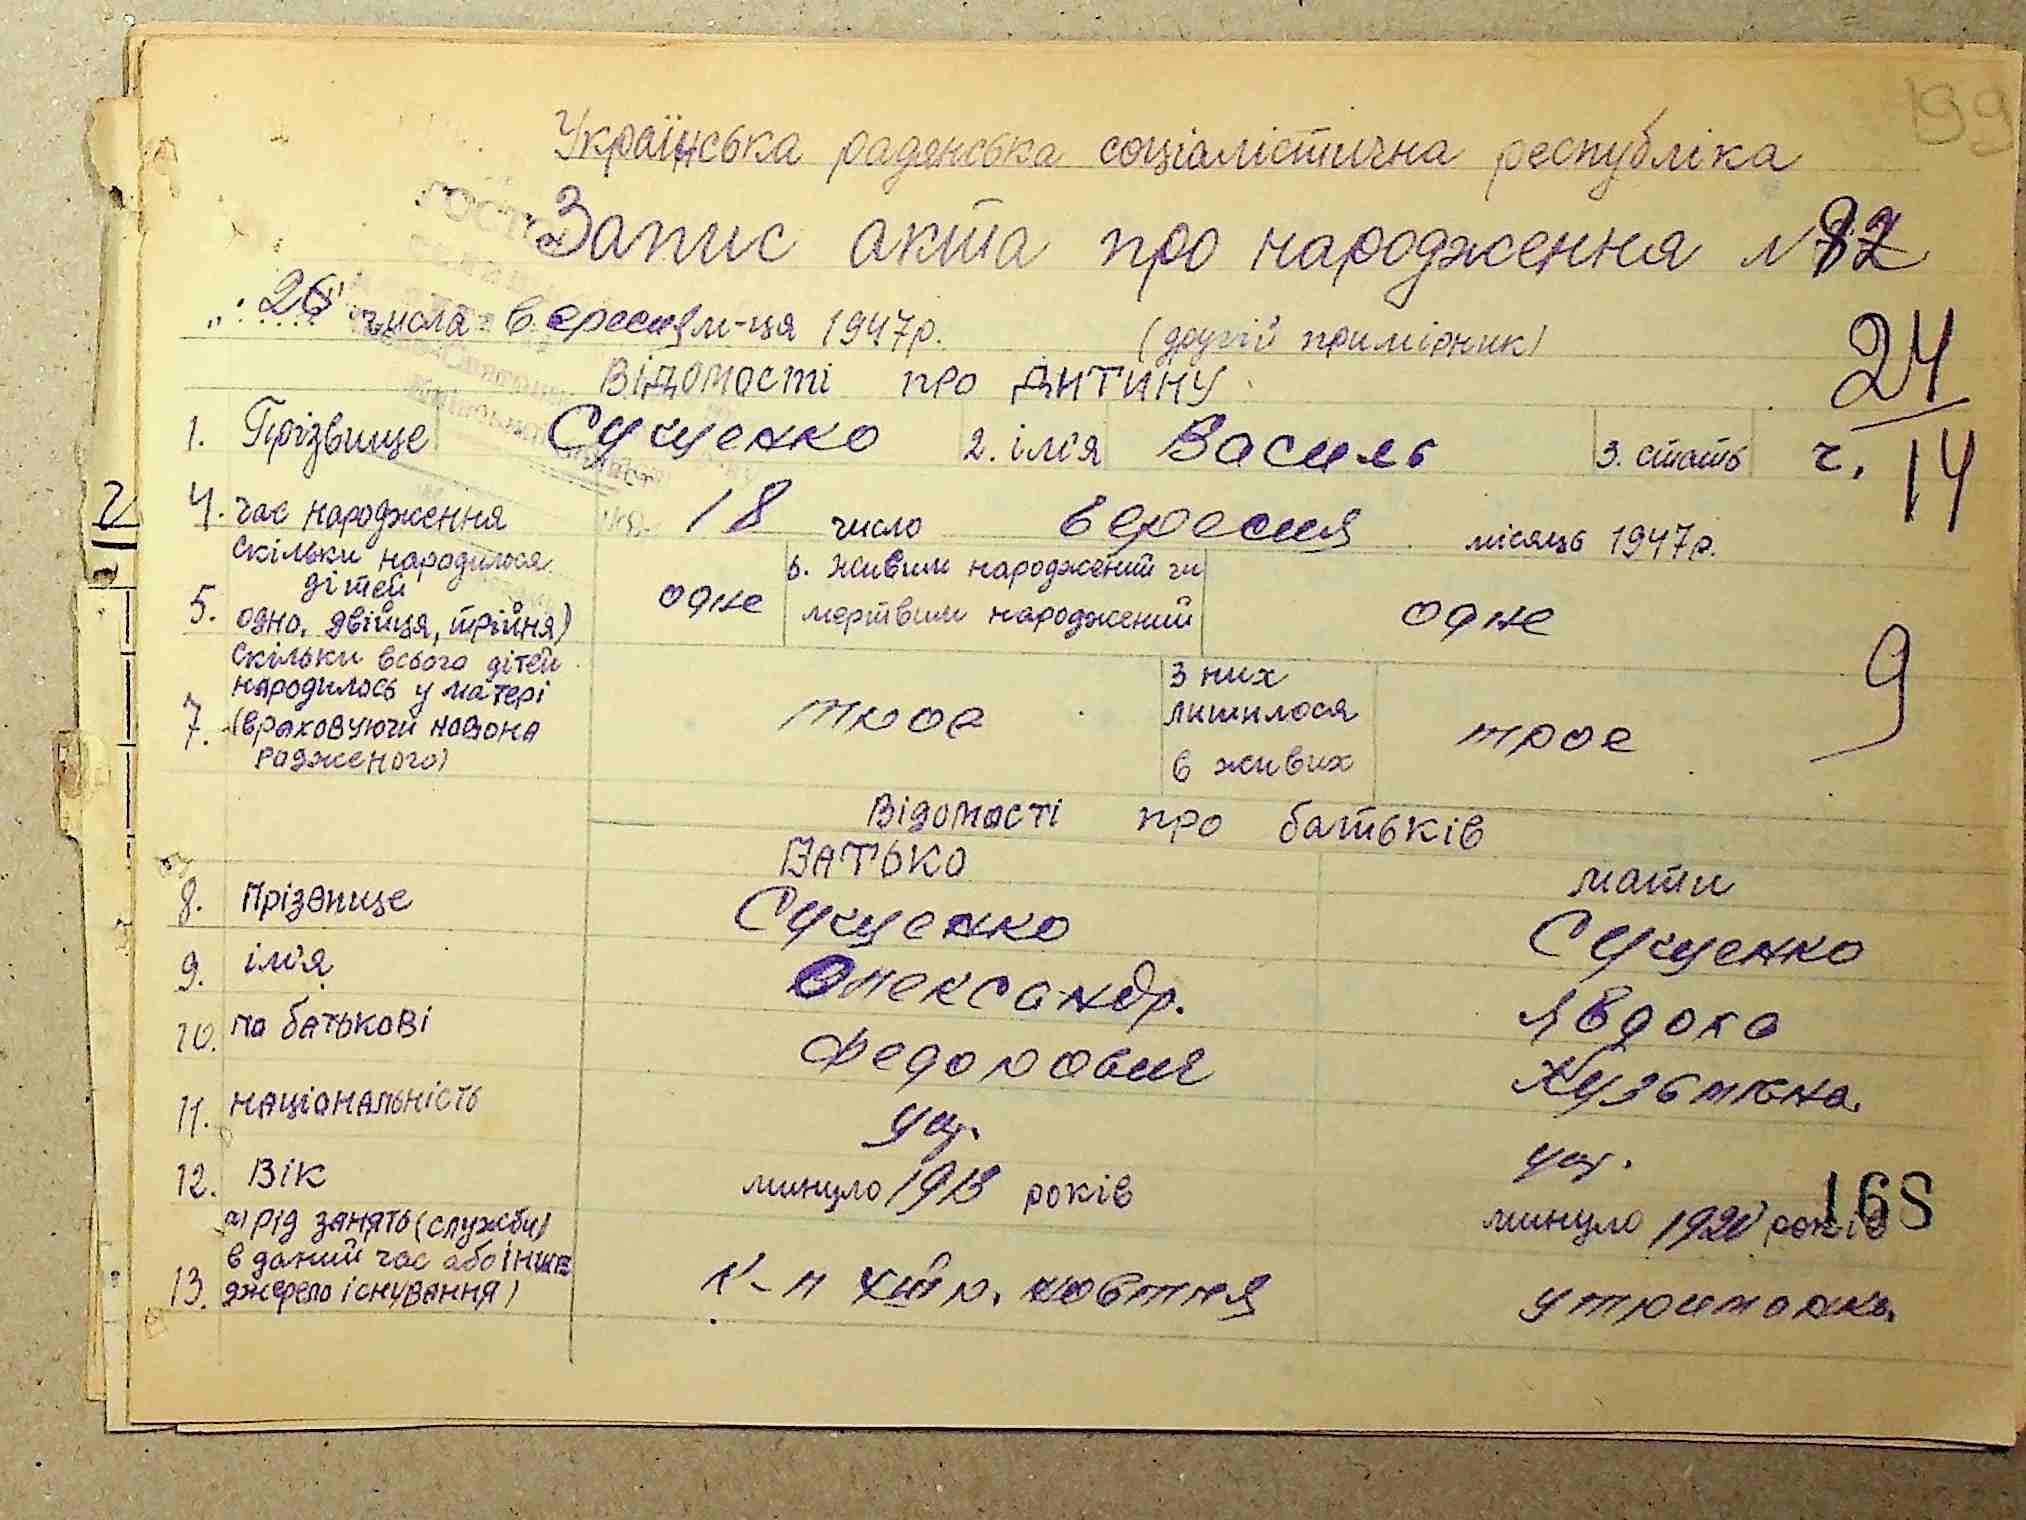 199
Українська радянська соціалістична республіка
Запис акта про народження № 82
"26" числа вересня м-ця 1947р. (другий примірник)
24
Відомості про дитину
14
1. Прізвище Сущенко 2. ім'я Василь 3. стать ч.
4. час народження 18 число вересня місяць 1947р.
скільки народилося
дітей
5. одно, двійця, трійня) одне
6. живим народжений чи
мертвим народжений одне
9
скільки всього дітей
народилось у матері
7. (враховуючи новона
родженого) троє
з них
лишилося
в живих троє
Відомості про батьків
Батько мати
8. Прізвище Сущенко Сущенко
9. ім'я Олександр. Явдоха
10. по батькові Федорович Кузьмівна.
11. національність укр. укр.
12. Вік минуло 1913 років минуло 1920 років
168
а) рід занять (служби)
в даний час або інше
13. джерело існування) к-п жовтня утриманка.